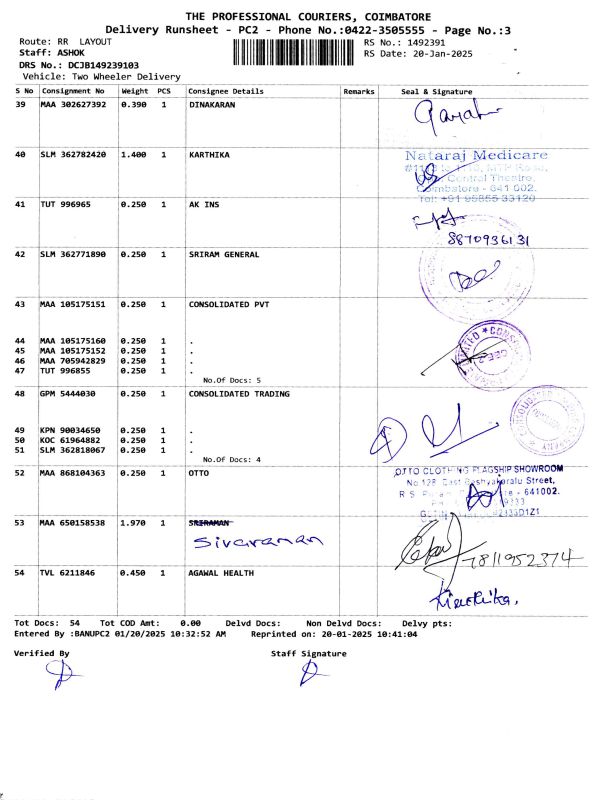 THE PROFESSIONAL COURIERS, COIMBATORE
Delivery Runsheet - PC2 - Phone No.:0422-3505555 - Page No.:3
Route: RR LAYOUT
RS No.: 1492391
Staff: ASHOK
RS Date: 20-Jan-2025
DRS No.: DCJB149239103
Vehicle: Two Wheeler Delivery
S No Consignment No Weight PCS Consignee Details Remarks Seal & Signature
39 MAA 302627392 0.390 1 DINAKARAN
40 SLM 362782420 1.400 1 KARTHIKA
Nataraj Medicare
Central Theatre,
Coimbatore - 641 002.
Tel: +91 95855 33120
41 TUT 996965 0.250 1 AK INS
8870936131
42 SLM 362771890 0.250 1 SRIRAM GENERAL
43 MAA 105175151 0.250 1 CONSOLIDATED PVT
44 MAA 105175160 0.250 1 .
45 MAA 105175152 0.250 1 .
46 MAA 705942829 0.250 1 .
47 TUT 996855 0.250 1 .
No.Of Docs: 5
48 GPM 5444030 0.250 1 CONSOLIDATED TRADING
49 KPN 90034650 0.250 1 .
50 KOC 61964882 0.250 1 .
51 SLM 362818067 0.250 1 .
No.Of Docs: 4
52 MAA 868104363 0.250 1 OTTO
OTTO CLOTHING FLAGSHIP SHOWROOM
No 128, East Street,
R S - 641002.
53 MAA 650158538 1.970 1 SRERAMAN
Sivaraman
7811952374
54 TVL 6211846 0.450 1 AGAWAL HEALTH
Tot Docs: 54 Tot COD Amt: 0.00 Delvd Docs: Non Delvd Docs: Delvy pts:
Entered By :BANUPC2 01/20/2025 10:32:52 AM Reprinted on: 20-01-2025 10:41:04
Verified By Staff Signature